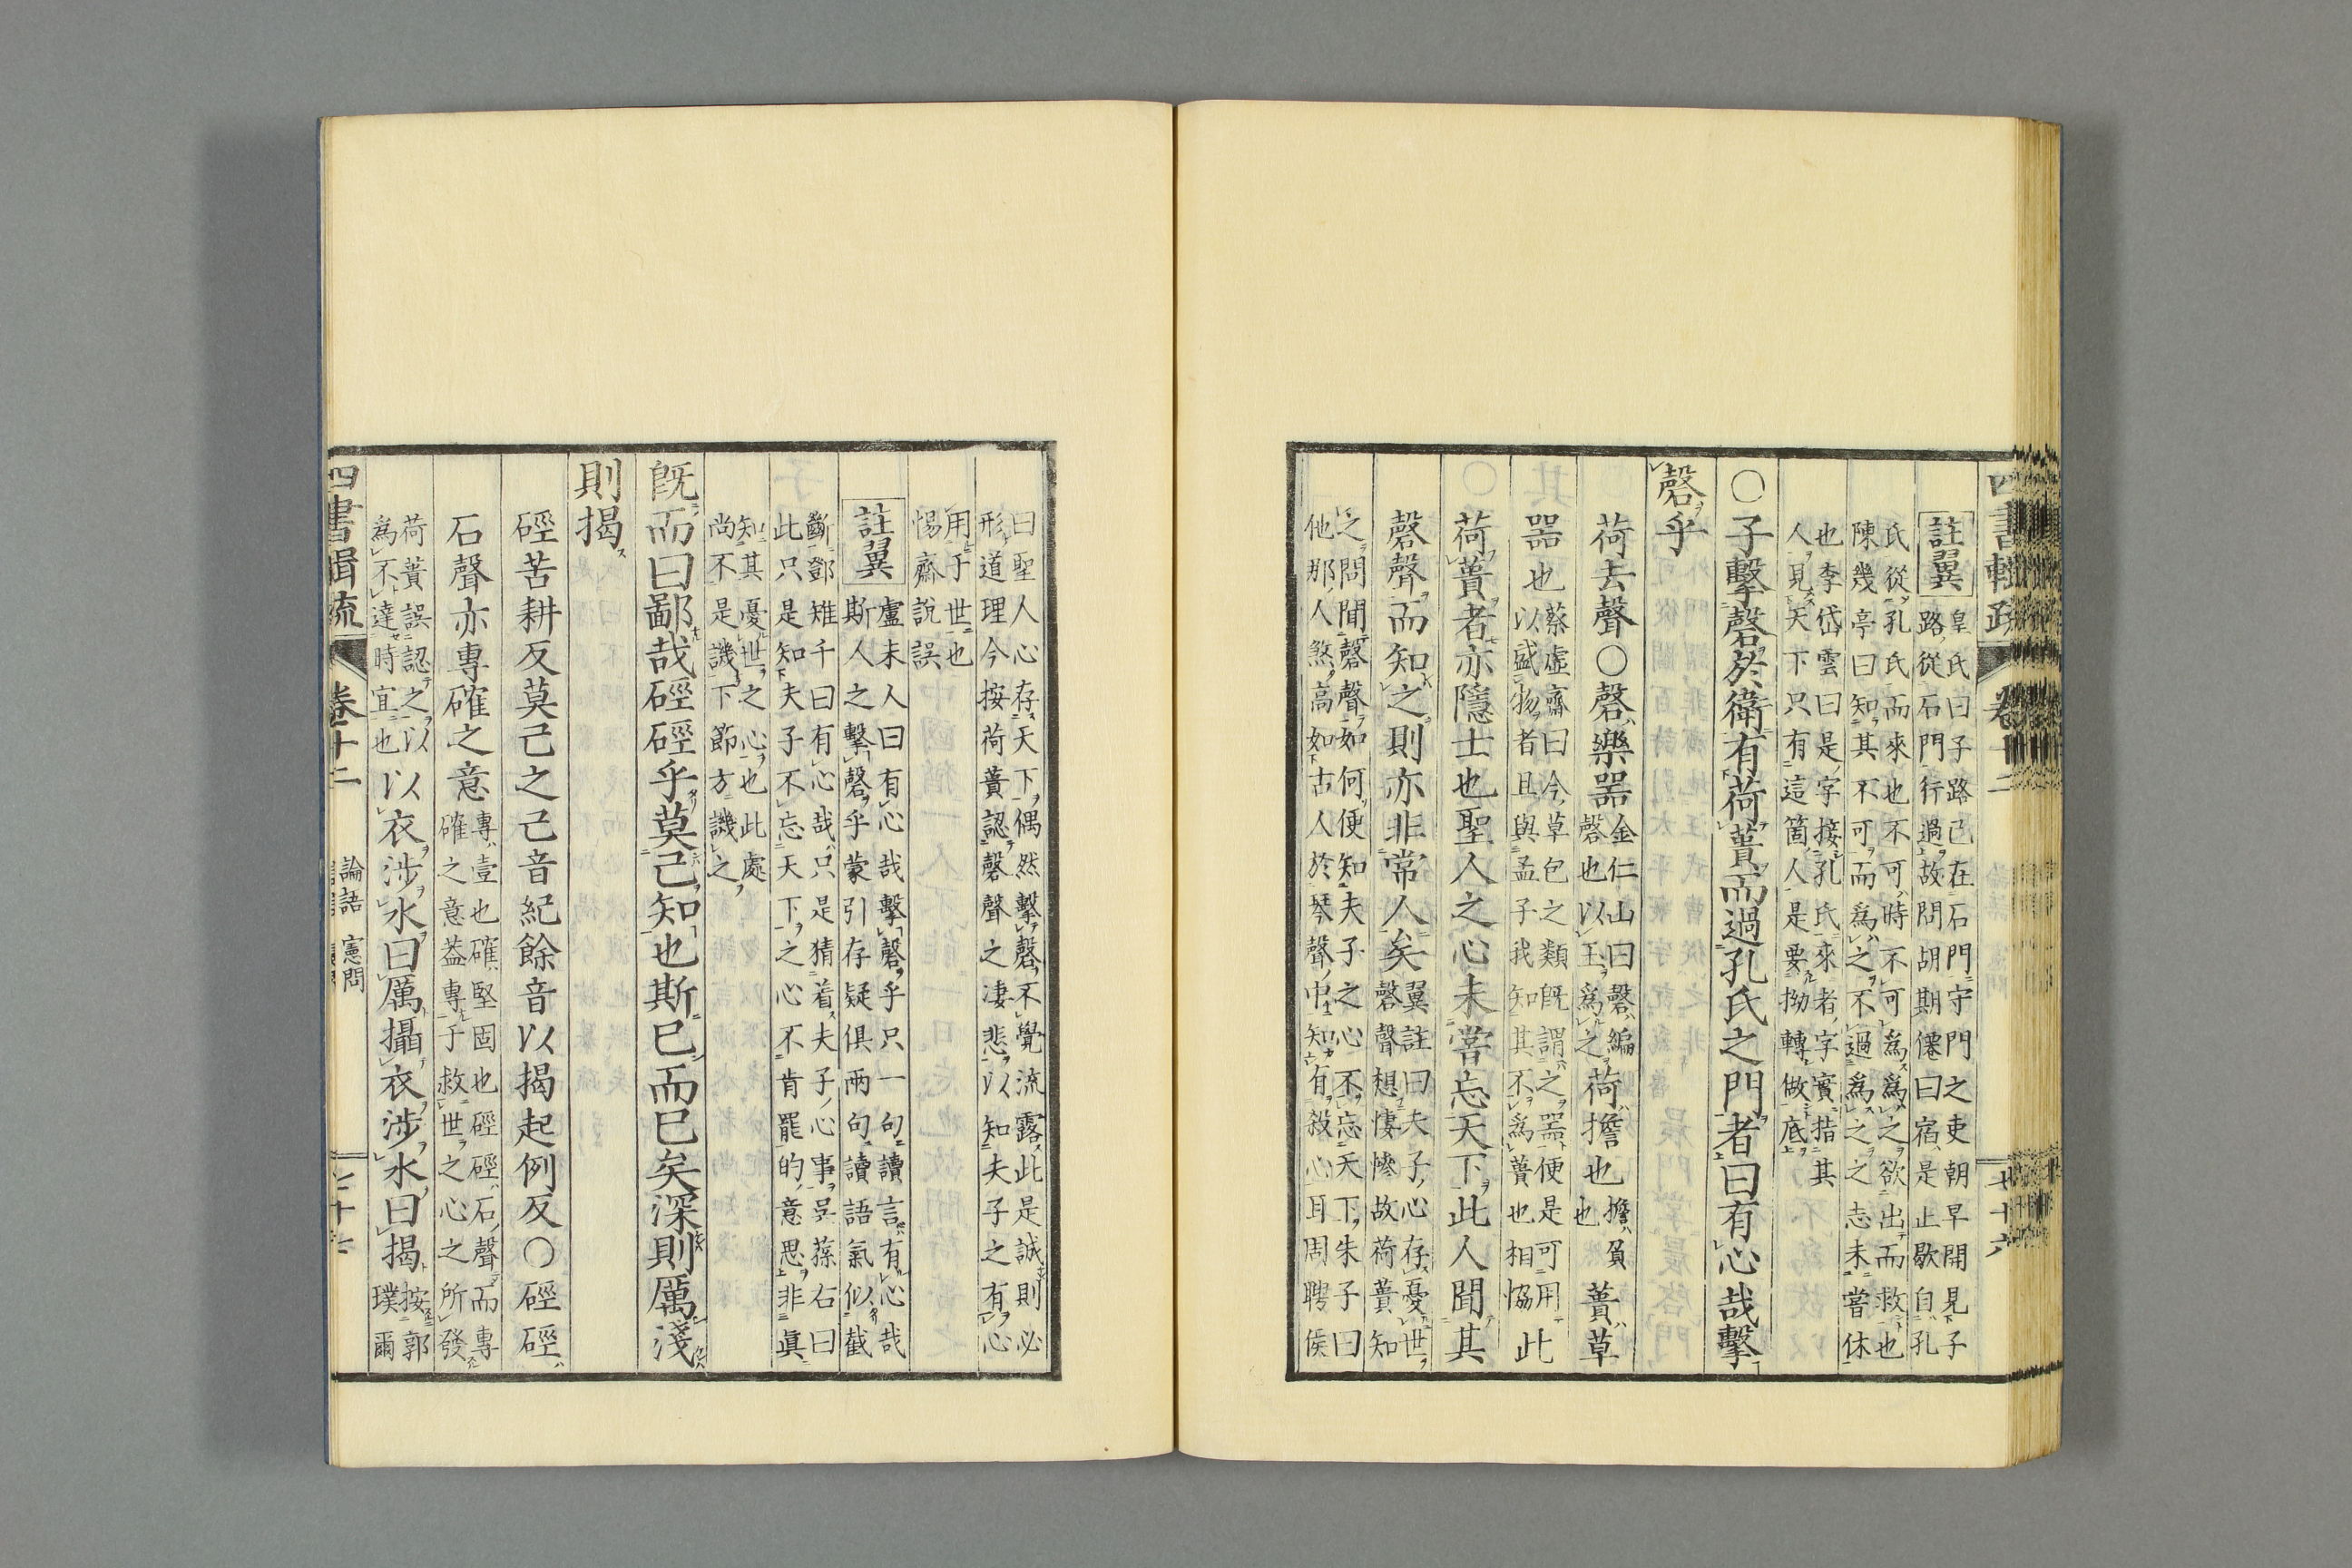 四書輯疏 卷十二
註翼 皇氏曰子路己在石門守門之吏朝早開見子
路從石門行過故問胡期僊曰宿是止歇自孔
氏從孔氏而來也不可時不可爲爲之欲出而救也
陳幾亭曰知其不可而爲之不過爲之之志未嘗休
也李岱雲曰是字接孔氏來者字實指其
人見天下只有這箇人是要拗轉做底
〇子擊磬於衛有荷蕢而過孔氏之門者曰有心哉擊
磬乎
荷去聲〇磬樂器金仁山曰磬編
磬也以玉爲之荷擔也擔負也蕢草
器也蔡虛齋曰今草包之類既謂之器便是可用
以盛物者且與孟子我知其不爲蕢也相恊此
荷蕢者亦隱士也聖人之心未嘗忘天下此人聞其
磬聲而知之則亦非常人矣翼註曰夫子心存憂世
磬聲想悽慘故荷蕢知
之問聞磬聲如何便知夫子之心不忘天下朱子曰
他那人煞高如古人於琴聲中知有殺心耳周聘侯
曰聖人心存天下偶然擊磬不覺流露此是誠則必
形道理今按荷蕢認磬聲之凄悲以知夫子之有心
用于世也
惕齋說誤
註翼 盧未人曰有心哉擊磬乎只一句讀言有心哉
斯人之擊磬乎蒙引存疑俱兩句讀語氣似截
斷鄧雉千曰有心哉只是猜着夫子心事吳蓀右曰
此只是知夫子不忘天下之心不肯罷的意思非眞
知其憂世之心也此處
尚不是譏下節方譏之
既而曰鄙哉硜硜乎莫己知也斯已而已矣深則厲淺
則揭
硜苦耕反莫己之己音紀餘音以揭起例反〇硜硜
石聲亦專確之意專壹也確堅固也硜硜石聲而專
確之意葢專于救世之心之所發
荷蕢誤認之以
爲不達時宜也以衣涉水曰厲攝衣涉水曰揭按郭
璞爾
四書輯疏 卷十二 論語 憲問